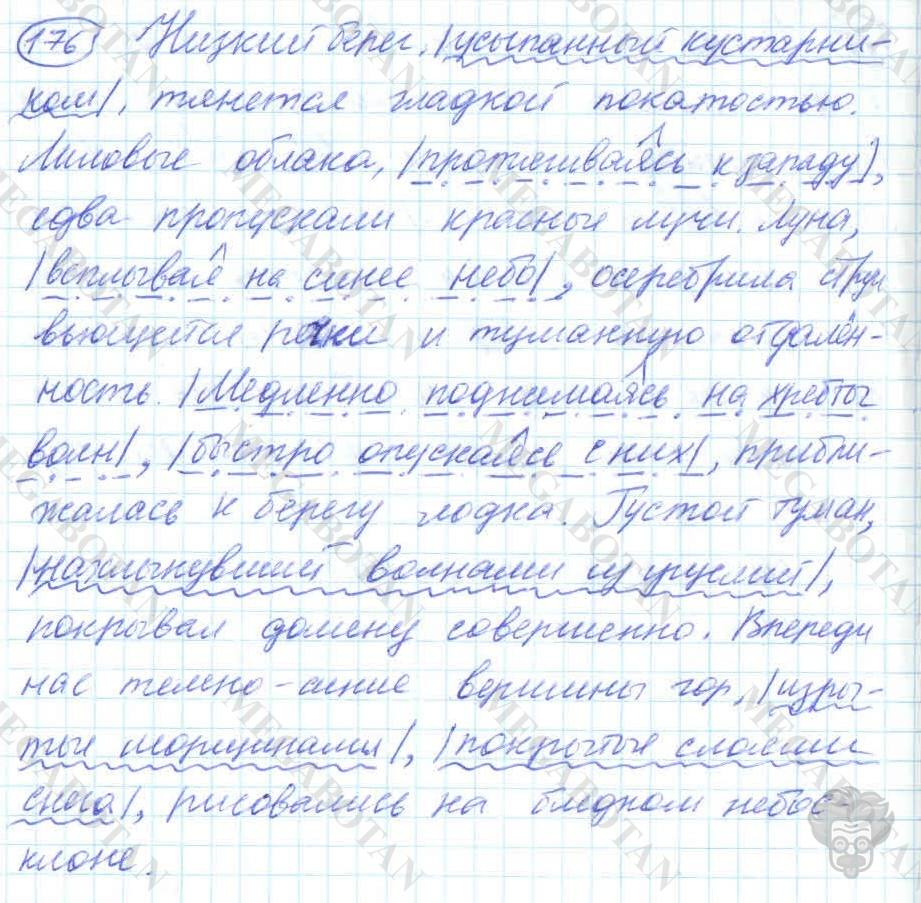 176 Низкий берег, |усыпанный кустарни-
ком|, тянется гладкой покатостью.
Лиловые облака, |протягиваясь к западу|,
едва пропускали красные лучи. Луна,
|всплывая на синее небо|, осеребрила струи
вьющуейся речки и туманную отдалён-
ность. |Медленно поднимаясь на хребты
волн|, |быстро опускаясь с них|, прибли-
жалась к берегу лодка. Густой туман,
|нахлынувший волнами из ущелий|,
покрывал долину совершенно. Впереди
нас темно-синие вершины гор, |изры-
тые морщинами|, |покрытые слоями
снега|, рисовались на бледном небос-
клоне.
MEGABOTAN